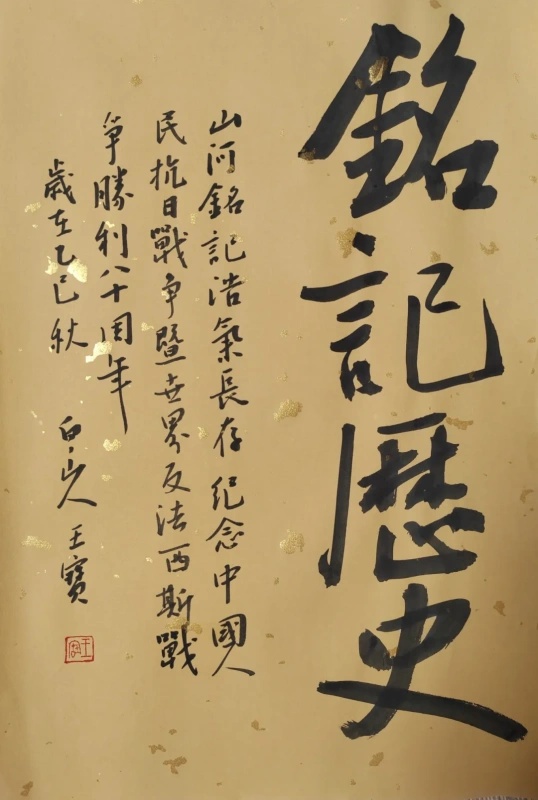 銘記歷史
山河銘記浩氣長存紀念中國人
民抗日戰爭暨世界反法西斯戰
爭勝利八十周年
歲在乙巳秋 白山人 王寶